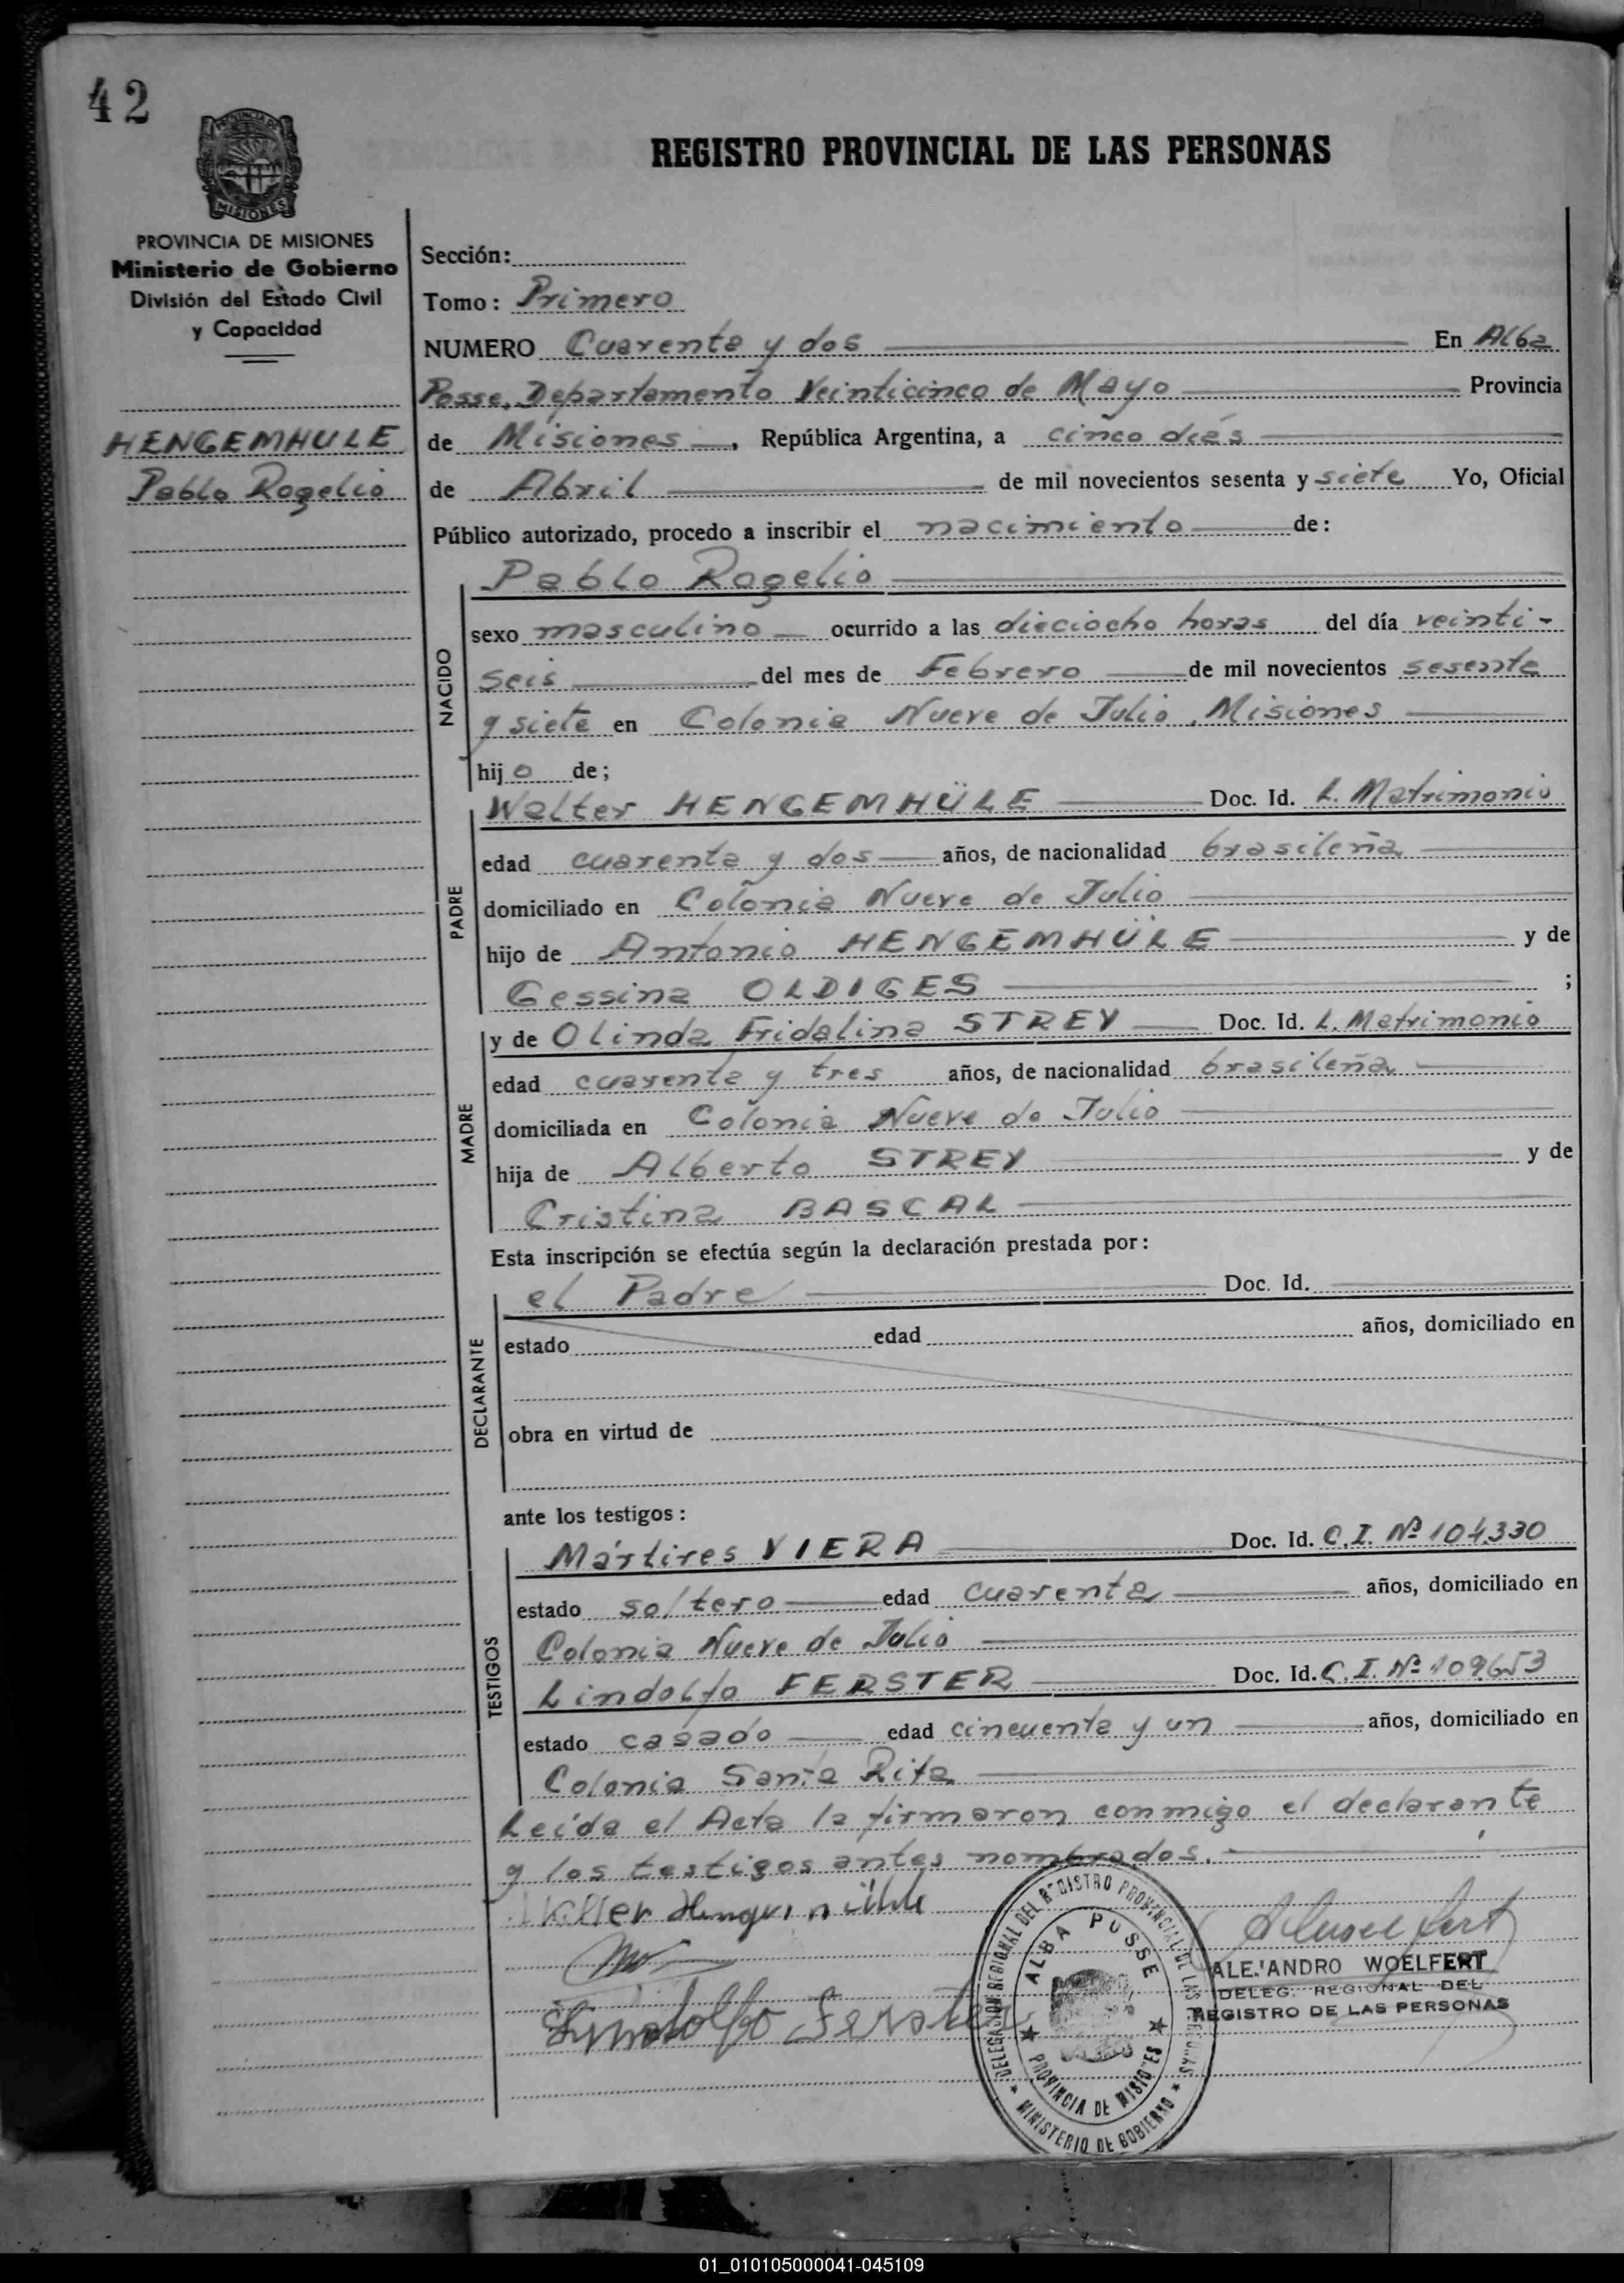 42
PROVINCIA DE
MISIONES
REGISTRO PROVINCIAL DE LAS PERSONAS
PROVINCIA DE MISIONES
Ministerio de Gobierno
División del Estado Civil
y Capacidad
HENGEMHULE
Pablo Rogelio
Sección:
Tomo: Primero
NUMERO Cuarenta y dos En Alba
Posse, Departamento Veinticinco de Mayo Provincia
de Misiones, República Argentina, a cinco días
de Abril de mil novecientos sesenta y siete Yo, Oficial
Público autorizado, procedo a inscribir el nacimiento de:
Pablo Rogelio
NACIDO
sexo masculino ocurrido a las dieciocho horas del día veinti-
seis del mes de Febrero de mil novecientos sesenta
y siete en Colonia Nueve de Julio, Misiones
hijo de;
PADRE
Walter HENGEMHÜLE Doc. Id. L. Matrimonio
edad cuarenta y dos años, de nacionalidad brasileña
domiciliado en Colonia Nueve de Julio
hijo de Antonio HENGEMHÜLE y de
Gessina OLDIGES ;
MADRE
y de Olinda Fridalina STREY Doc. Id. L. Matrimonio
edad cuarenta y tres años, de nacionalidad brasileña
domiciliada en Colonia Nueve de Julio
hija de Alberto STREY y de
Cristina BASCAL
Esta inscripción se efectúa según la declaración prestada por:
DECLARANTE
el Padre Doc. Id.
estado edad años, domiciliado en
obra en virtud de
ante los testigos:
TESTIGOS
Mártires VIERA Doc. Id. C.I. Nº 104330
estado soltero edad cuarenta años, domiciliado en
Colonia Nueve de Julio
Lindolfo FERSTER Doc. Id. C.I. Nº 109653
estado casado edad cincuenta y un años, domiciliado en
Colonia Santa Rita
Leída el Acta la firmaron conmigo el declarante
y los testigos antes nombrados.
DELEGASION REGIONAL DEL REGISTRO PROVINCIAL DE LAS PERSONAS
ALBA PUSSE
PROVINCIA DE MISIONES
MINISTERIO DE GOBIERNO
ALEJANDRO WOELFERT
DELEG. REGIONAL DEL
REGISTRO DE LAS PERSONAS
Lindolfo Ferster
01_010105000041-045109